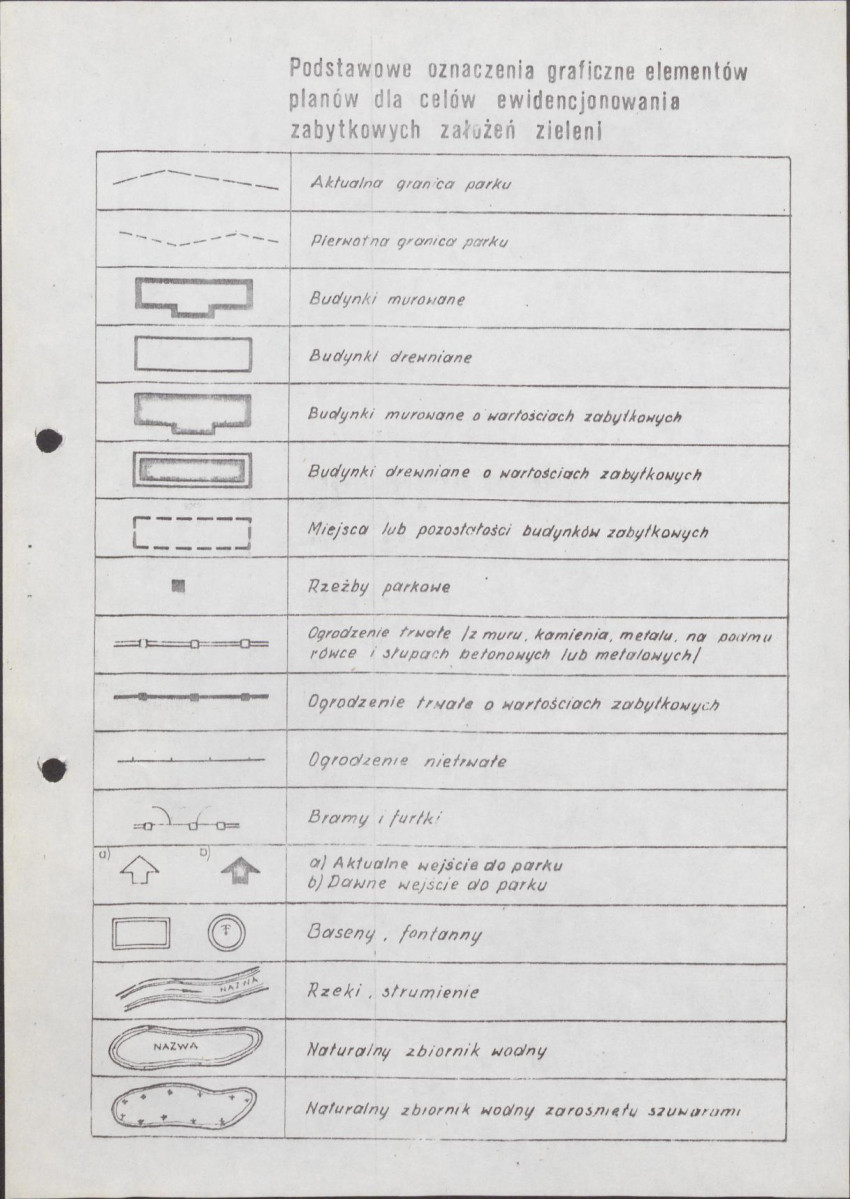 Podstawowe oznaczenia graficzne elementów
planów dla celów ewidencjonowania
zabytkowych założeń zieleni
Aktualna granica parku
Pierwotna granica parku
Budynki murowane
Budynki drewniane
Budynki murowane o wartościach zabytkowych
Budynki drewniane o wartościach zabytkowych
Miejsca lub pozostałości budynków zabytkowych
Rzeźby parkowe
Ogrodzenie trwałe /z muru, kamienia, metalu, na podmu
rówce i słupach betonowych lub metalowych/
Ogrodzenie trwałe o wartościach zabytkowych
Ogrodzenie nietrwałe
Bramy i furtki
a) b)
a) Aktualne wejście do parku
b) Dawne wejście do parku
F
Baseny, fontanny
NAZWA
Rzeki, strumienie
NAZWA
Naturalny zbiornik wodny
Naturalny zbiornik wodny zarośnięty szuwarami